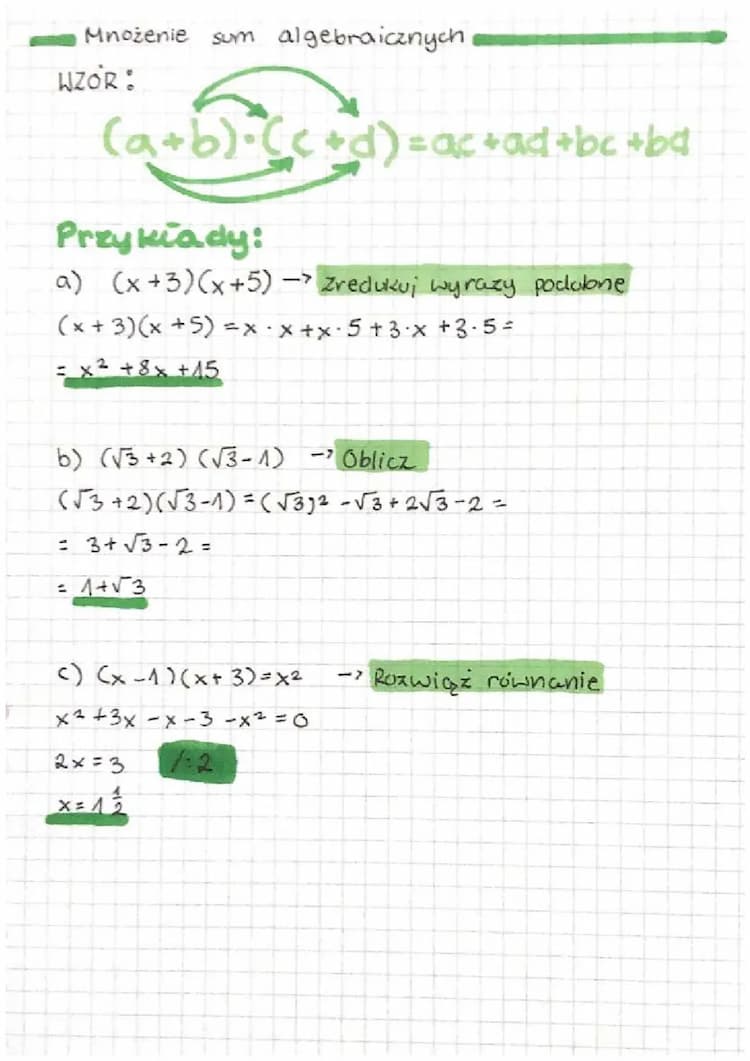 Mnożenie sum algebraicznych
WZÓR:
(a+b)·(c+d)=ac+ad+bc+bd
Przykłady:
a) (x+3)(x+5) → zredukuj wyrazy podobne
(x+3)(x+5)=x·x+x·5+3·x+3·5=
= x²+8x+15
b) (√3+2)(√3-1) → Oblicz
(√3+2)(√3-1)=(√3)²-√3+2√3-2=
= 3+√3-2=
= 1+√3
c) (x-1)(x+3)=x² → Rozwiąż równanie
x²+3x-x-3-x²=0
2x=3 /:2
x=1½